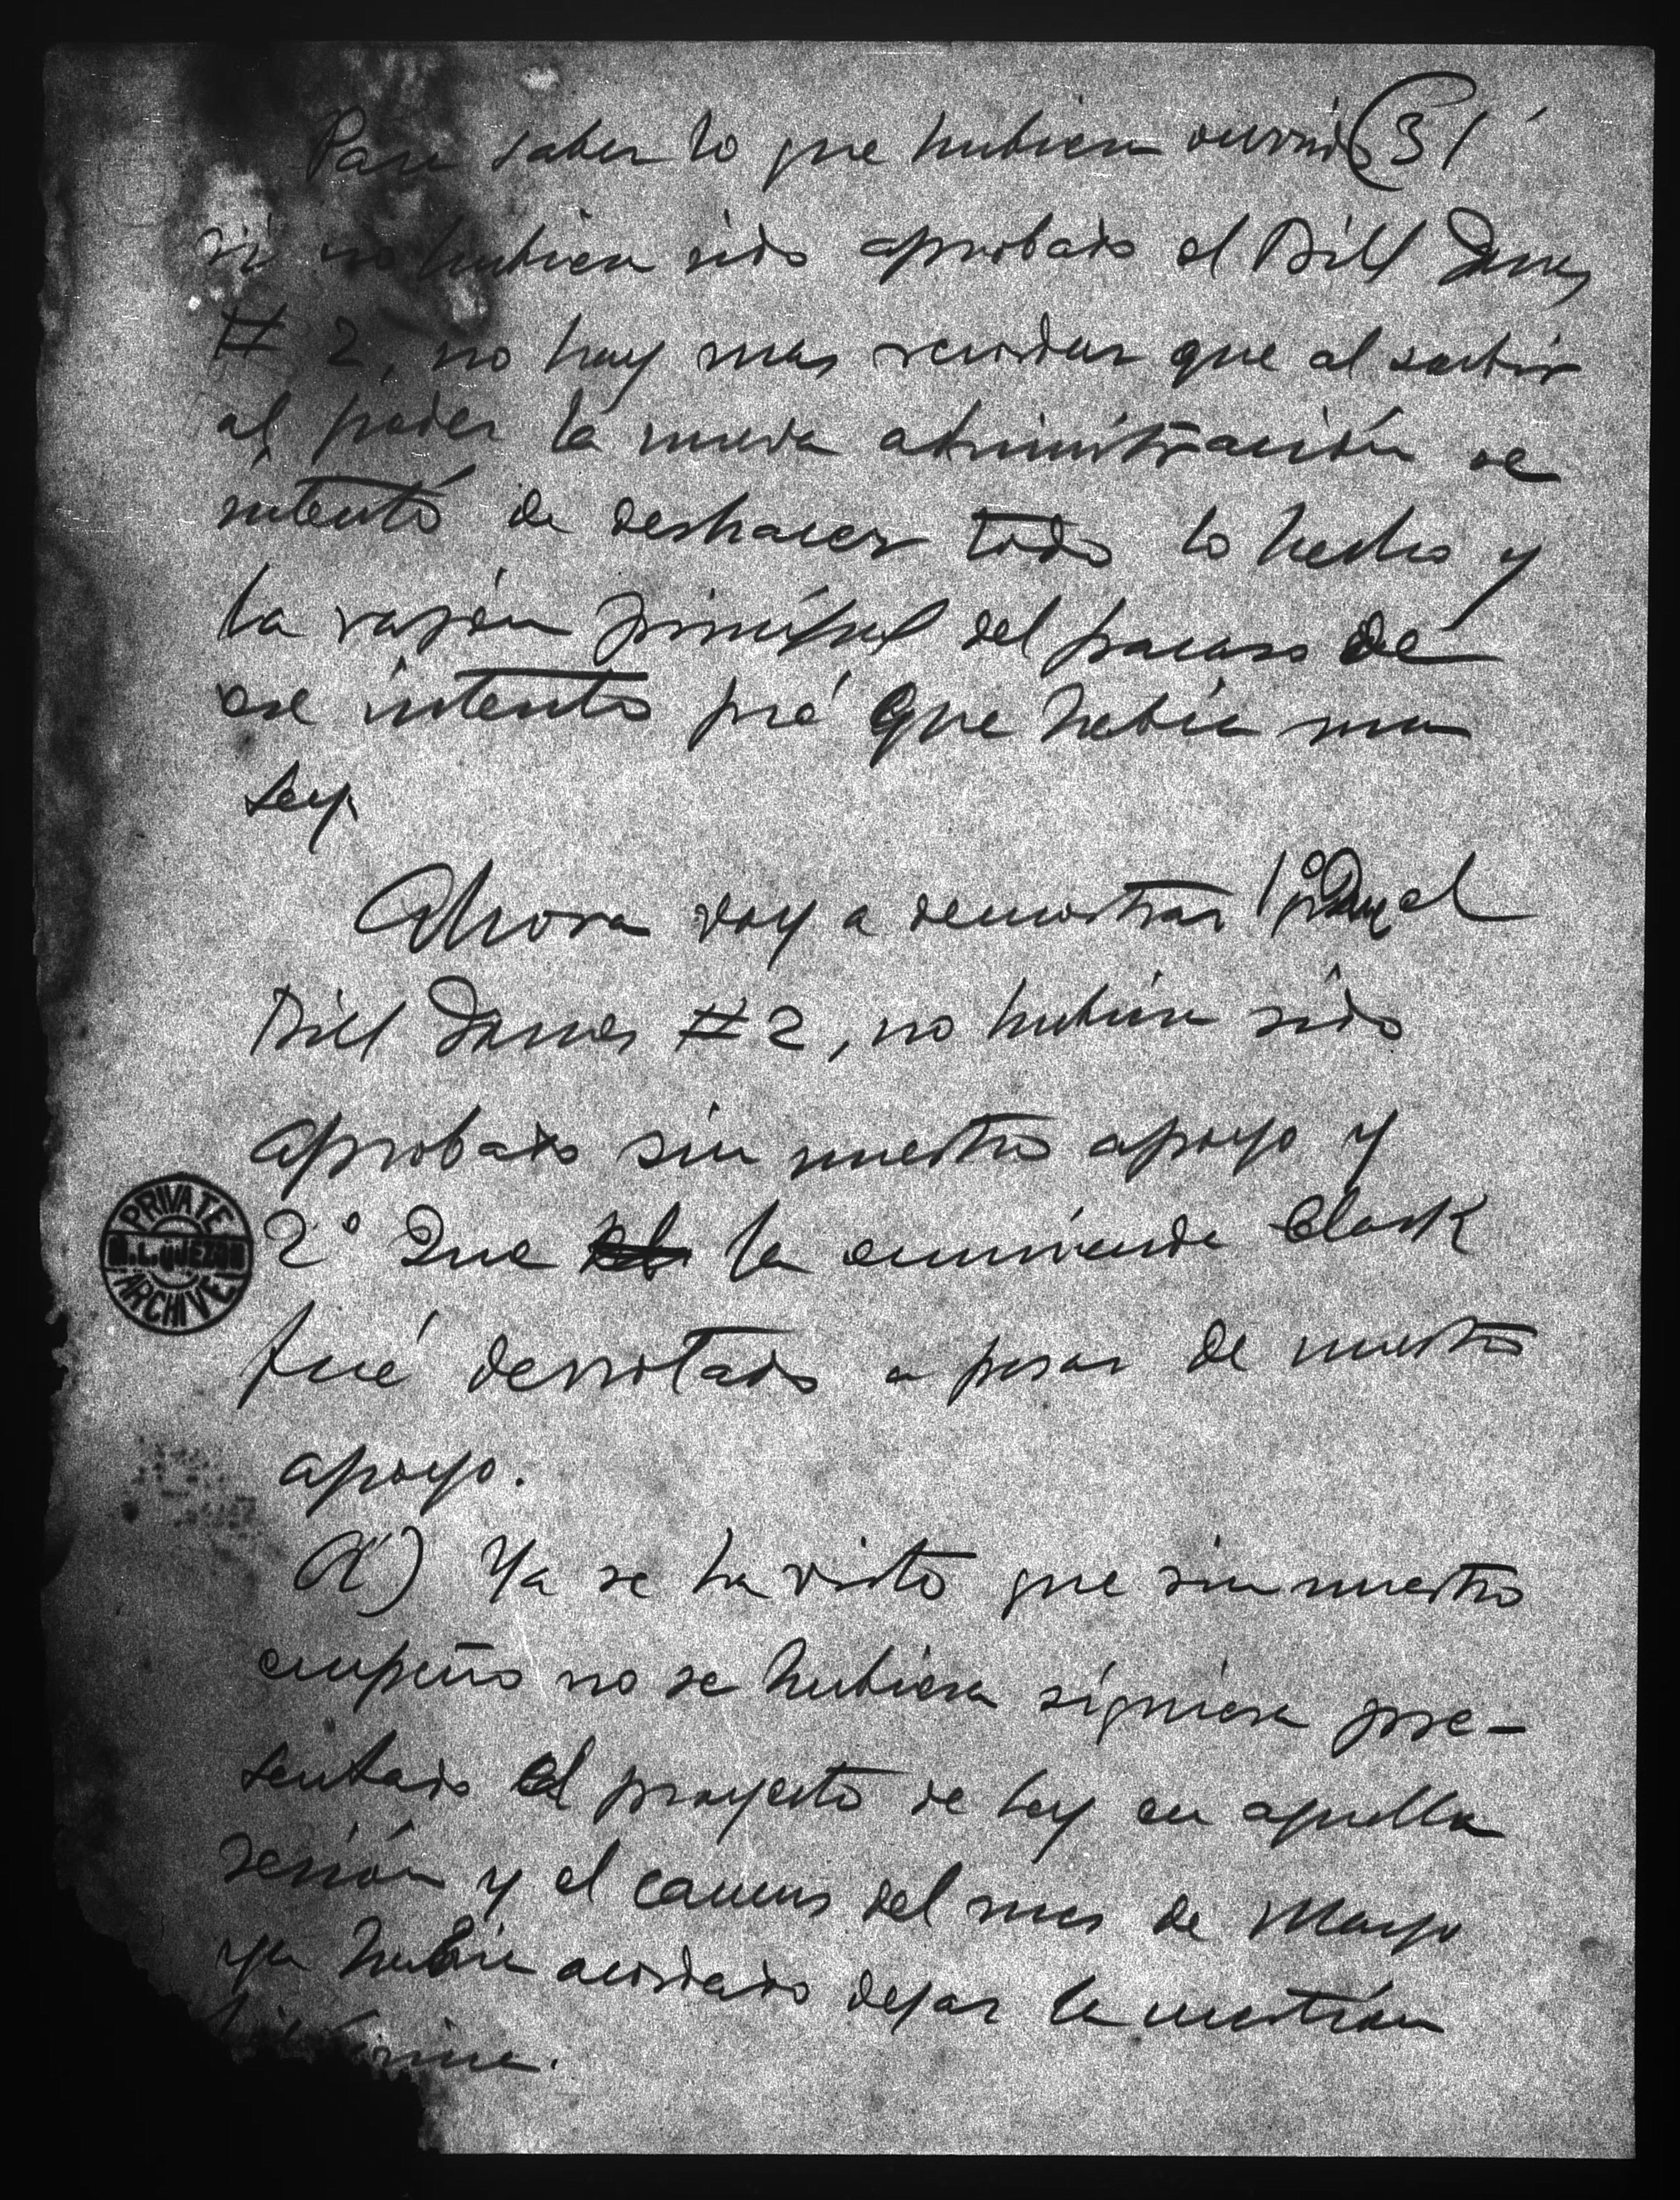 31
Para saber lo que hubiera ocurrido
si no hubiera sido aprobado el Bill Jones
# 2, no hay mas recordar que al subir
al poder la nueva administración se
intentó de deshacer todo lo hecho y
la razón principal del fracaso de
ese intento fué que había una
ley.
Ahora voy a demostrar 1º que el
Bill Jones #2, no hubiera sido
aprobado sin nuestro apoyo y
2º Que la enmienda Clark
fué derrotado a pesar de nuestro
apoyo.
A) Ya se ha visto que sin nuestro
empeño no se hubiera siquiera pre-
sentado el proyecto de ley en aquella
sesión y el caucus del mes de Mayo
ya había acordado dejar la cuestión
PRIVATE
M. L. QUEZON
ARCHIVE